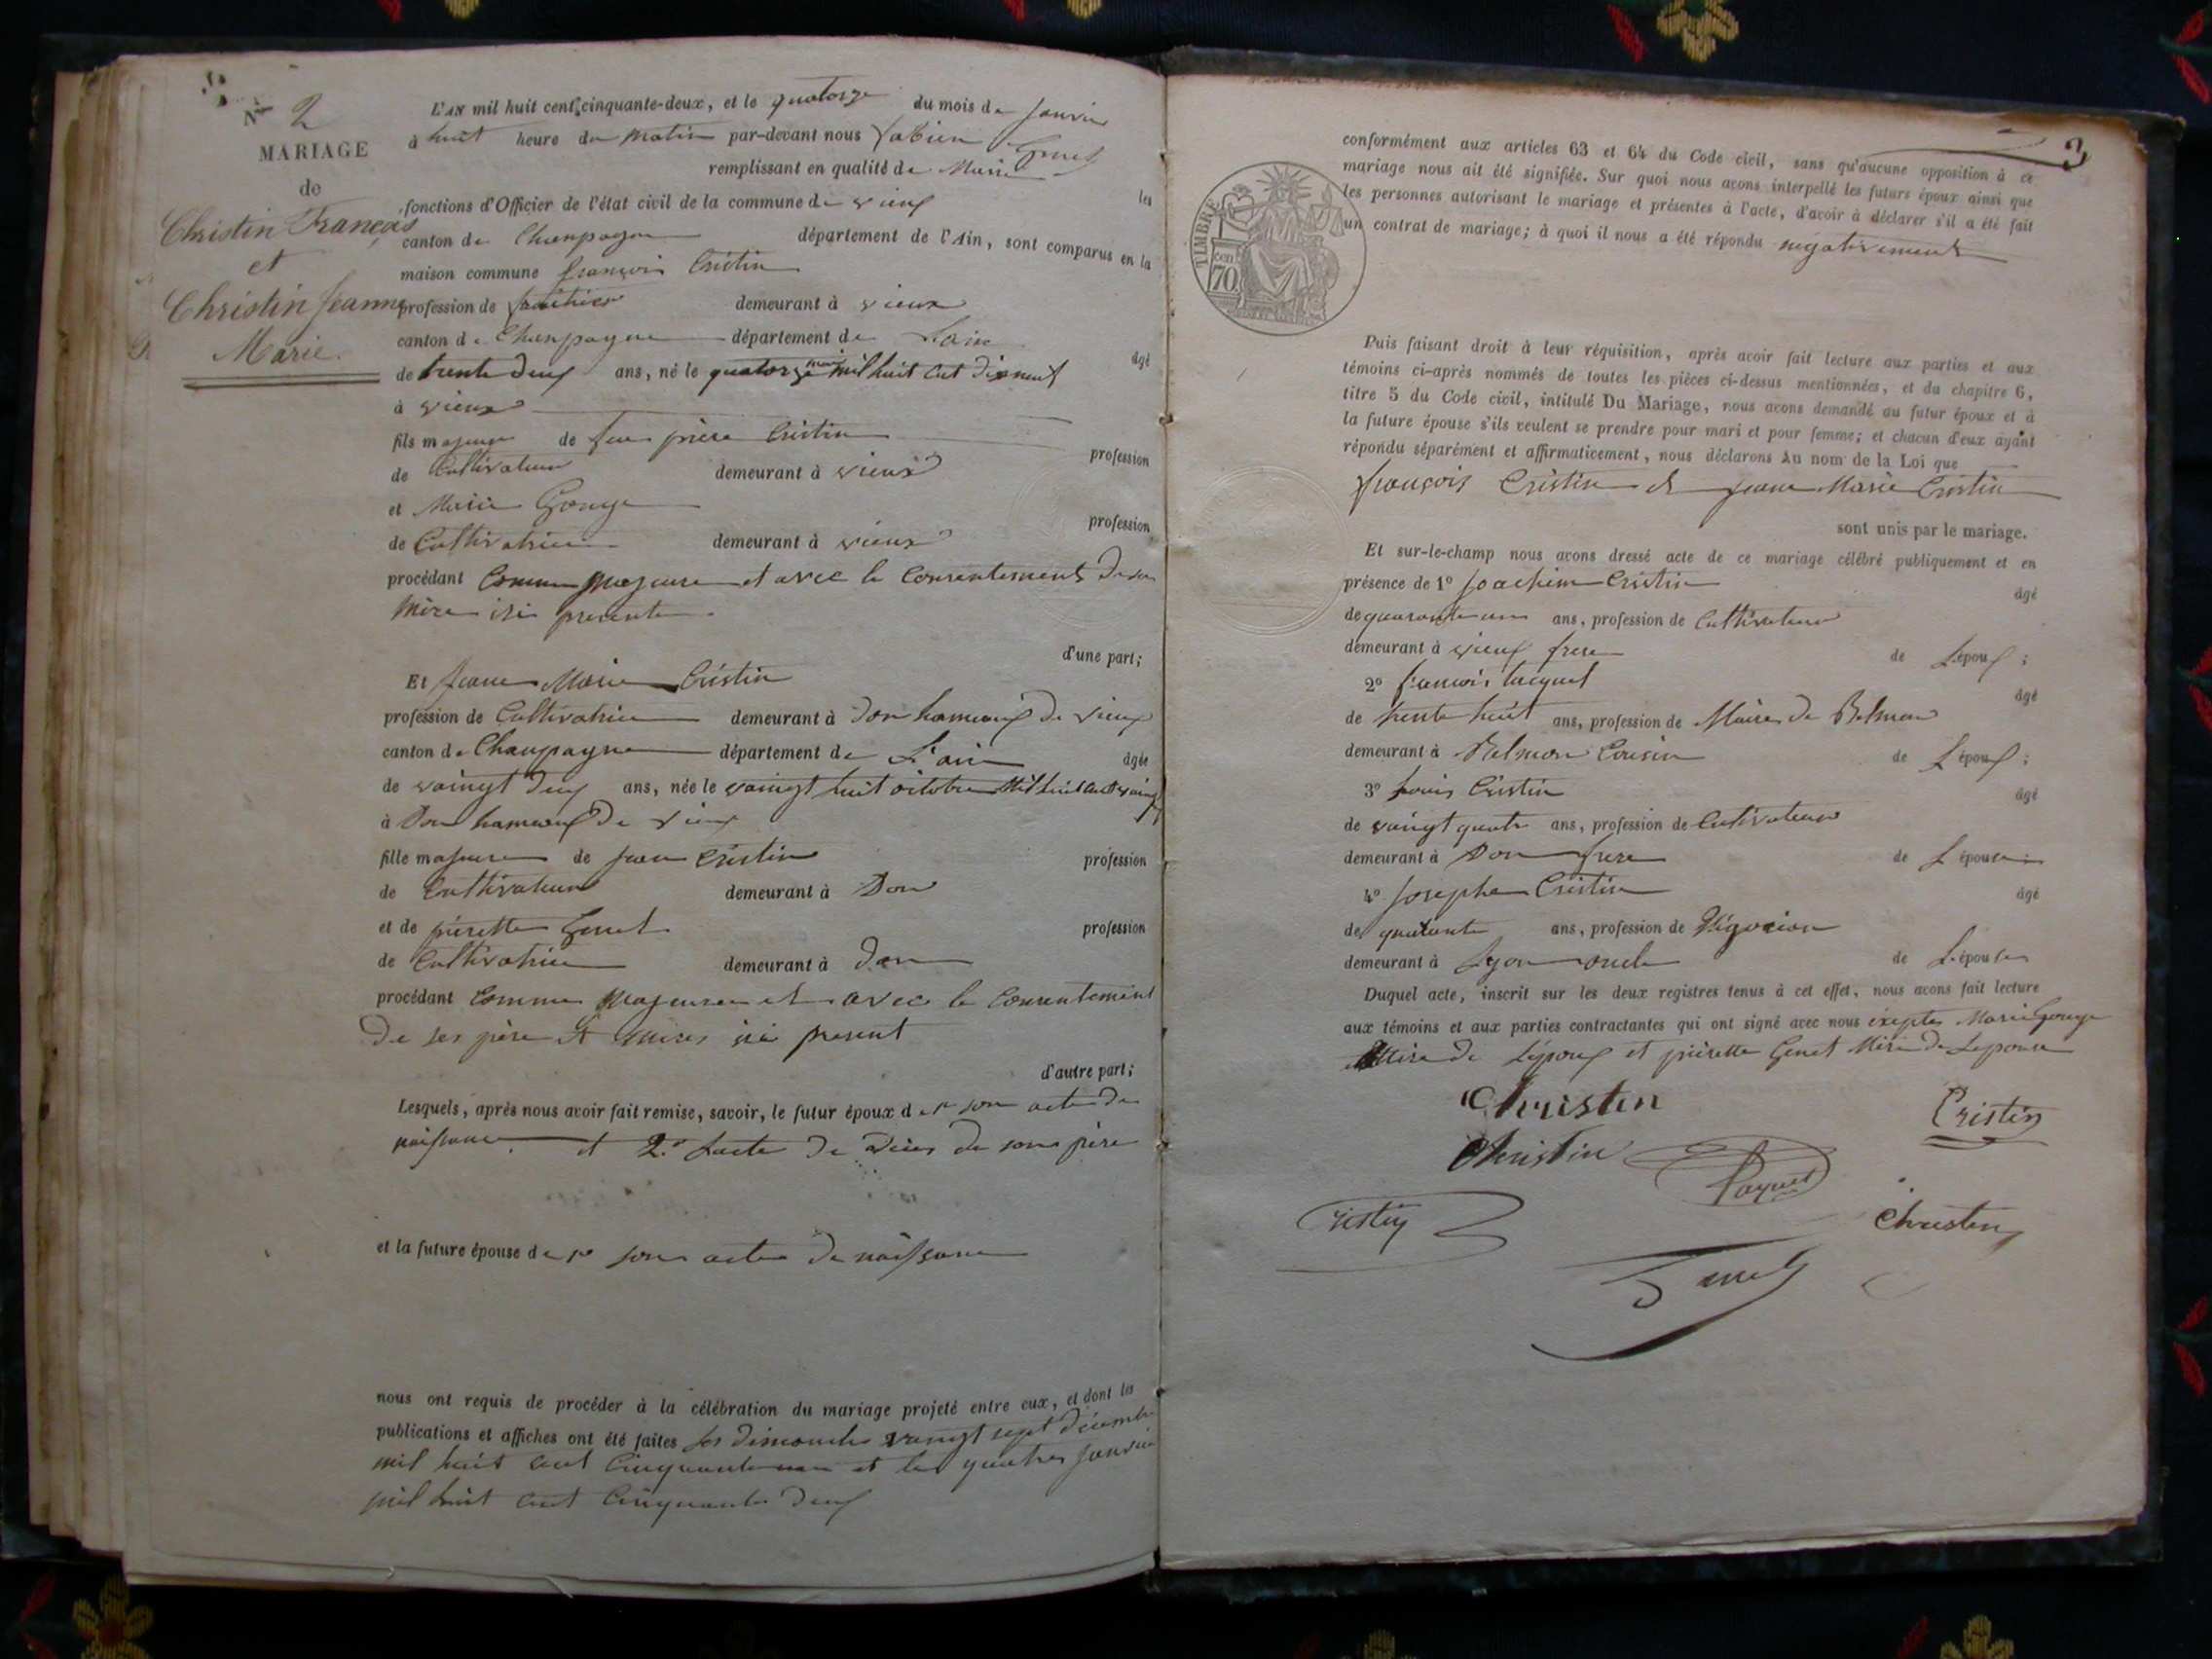 No 2
MARIAGE
de
Christin François
et
Christin Jeanne
Marie.
L'AN mil huit cent cinquante-deux, et le quatorze du mois de Janvier
à huit heure du matin par-devant nous fabien Genet
remplissant en qualité de Maire les
fonctions d'Officier de l'état civil de la commune de vieux
canton de Champagne département de l'Ain, sont comparus en la
maison commune françois Cristin
profession de demeurant à vieux
canton de Champagne département de Lain
âgé
de trente deux ans, né le quatorze mai mil huit cent dix neuf
à vieux
fils majeur de feu pière Cristin
profession
de Cultivateur demeurant à vieux
et Marie Gouge
profession
de Cultivatrice demeurant à vieux
procédant Comme majeure et avec le Consentement de sa
mère ici presente
d'une part;
Et Jeane Marie Cristin
profession de Cultivatrice demeurant à Don hameaux de vieux
canton de Champagne département de L'ain âgée
de vaingt deux ans, née le vaingt huit octobre mil huit cent vaingt
à Don hameaux de vieux
fille majeure de Jean Cristin profession
de Cultivateur demeurant à Don
et de pierette Genet profession
de Cultivatrice demeurant à Don
procédant Comme majeure et avec le Consentement
De ses père et mères ici present
d'autre part;
Lesquels, après nous avoir fait remise, savoir, le futur époux de 1o son acte de
naissance et 2o Lacte de décès de son père
et la future épouse de 1o son acte de naissance
nous ont requis de procéder à la célébration du mariage projeté entre eux, et dont les
publications et affiches ont été faites les dimanches vaingt sept décembre
mil huit cent Cinquante un et les quatres Janvier
mil huit cent Cinquante deux
3
conformément aux articles 63 et 64 du Code civil, sans qu'aucune opposition à ce
mariage nous ait été signifiée. Sur quoi nous avons interpellé les futurs époux ainsi que
les personnes autorisant le mariage et présentes à l'acte, d'avoir à déclarer s'il a été fait
un contrat de mariage; à quoi il nous a été répondu negativement
TIMBRE
70
Puis faisant droit à leur réquisition, après avoir fait lecture aux parties et aux
témoins ci-après nommés de toutes les pièces ci-dessus mentionnées, et du chapitre 6,
titre 5 du Code civil, intitulé Du Mariage, nous avons demandé au futur époux et à
la future épouse s'ils veulent se prendre pour mari et pour femme; et chacun d'eux ayant
répondu séparément et affirmativement, nous déclarons Au nom de la Loi que
françois Cristin et Jeane Marie Cristin
sont unis par le mariage.
Et sur-le-champ nous avons dressé acte de ce mariage célébré publiquement et en
présence de 1o Joachim Cristin
âgé
de quarante un ans, profession de Cultivateur
demeurant à vieux frere de Lépoux;
2o françois
âgé
de trente huit ans, profession de Maire de Belmon
demeurant à Belmon Cousin de Lépoux;
3o Louis Cristin
âgé
de vaingt quatre ans, profession de Cultivateur
demeurant à Don frere de Lépouse
4o Josephe Cristin
âgé
de quarante ans, profession de Négocian
demeurant à Lyon oncle de Lépouse
Duquel acte, inscrit sur les deux registres tenus à cet effet, nous avons fait lecture
aux témoins et aux parties contractantes qui ont signé avec nous exeptes Marie Gouge
Mère de Lépoux et pierette Genet Mère de Lepouse
Christin
Cristin
Christin
Cristin
Christin
Genet